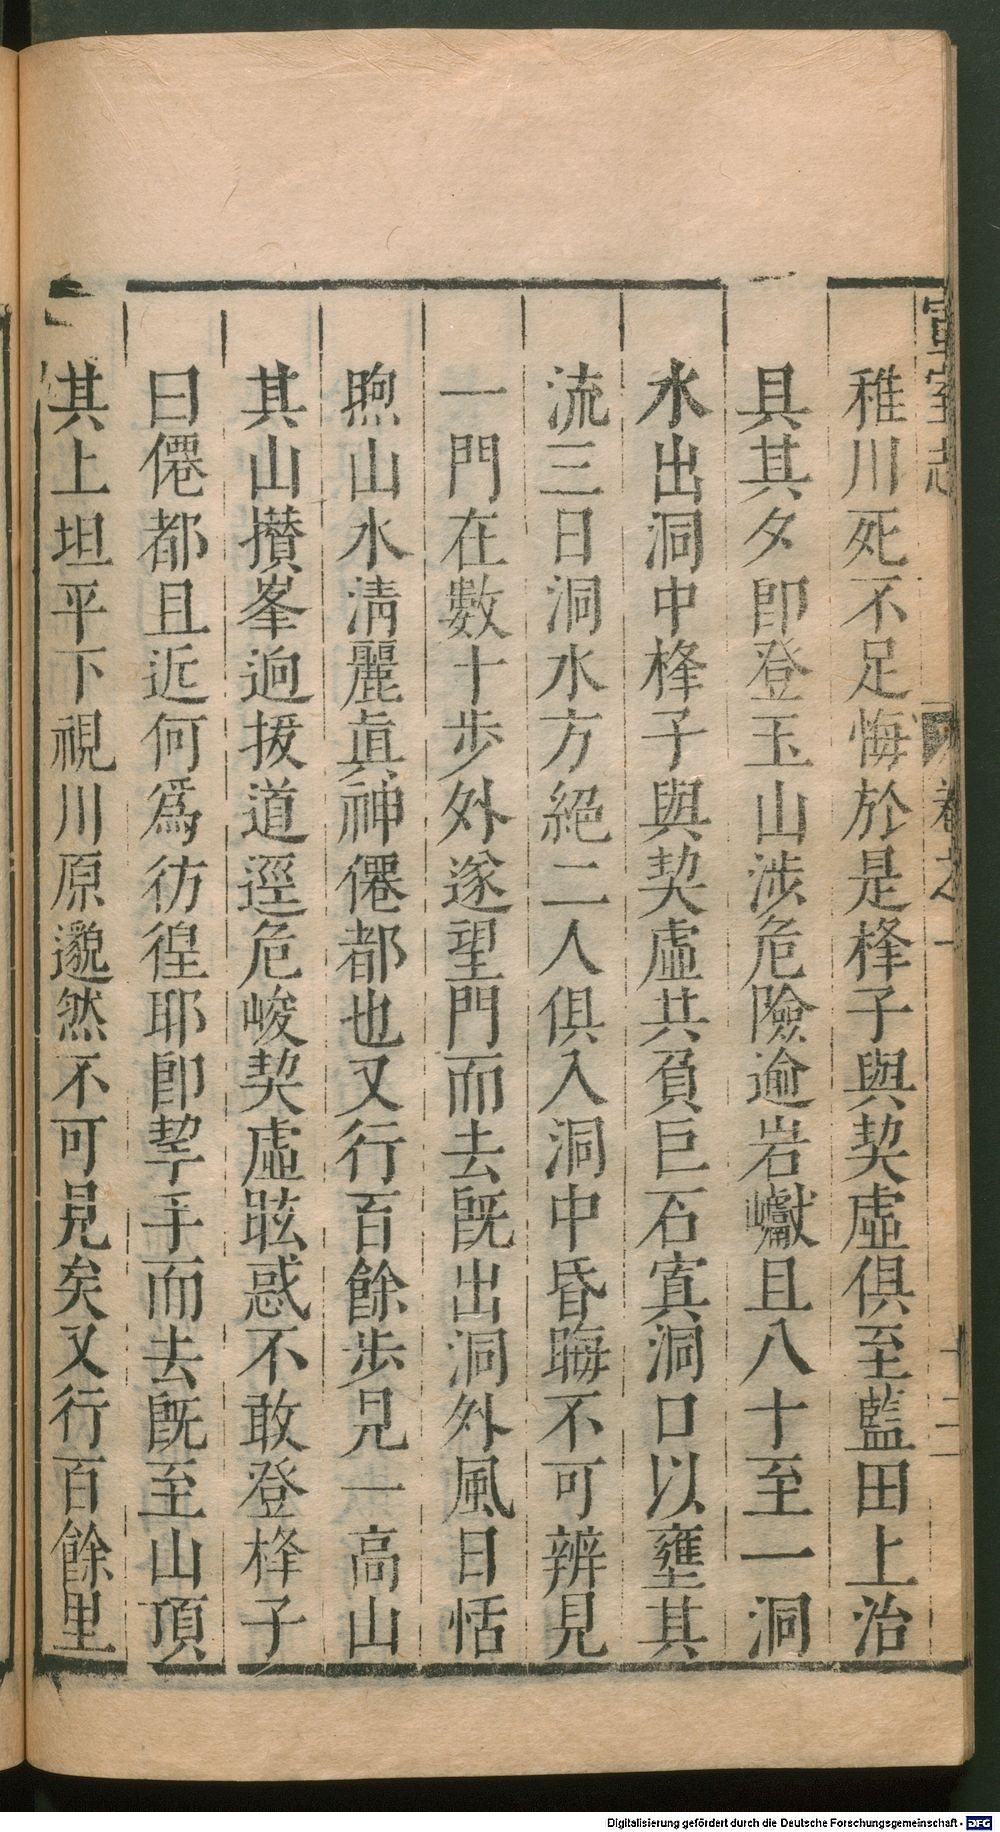 稚川死不足悔於是桻子與契虛俱至藍田上治
具其夕即登玉山涉危險逾岩巘且八十至一洞
水出洞中桻子與契虛共負巨石窴洞口以壅其
流三日洞水方絕二人俱入洞中昏晦不可辨見
一門在數十步外遂望門而去旣出洞外風日恬
煦山水淸麗眞神僊都也又行百餘步見一高山
其山攅峯逈拔道逕危峻契虛眩惑不敢登桻子
曰僊都且近何爲彷徨耶即挈手而去旣至山頂
其上坦平下視川原邈然不可見矣又行百餘里
宣室志 卷之一 十二
Digitalisierung gefördert durch die Deutsche Forschungsgemeinschaft - DFG